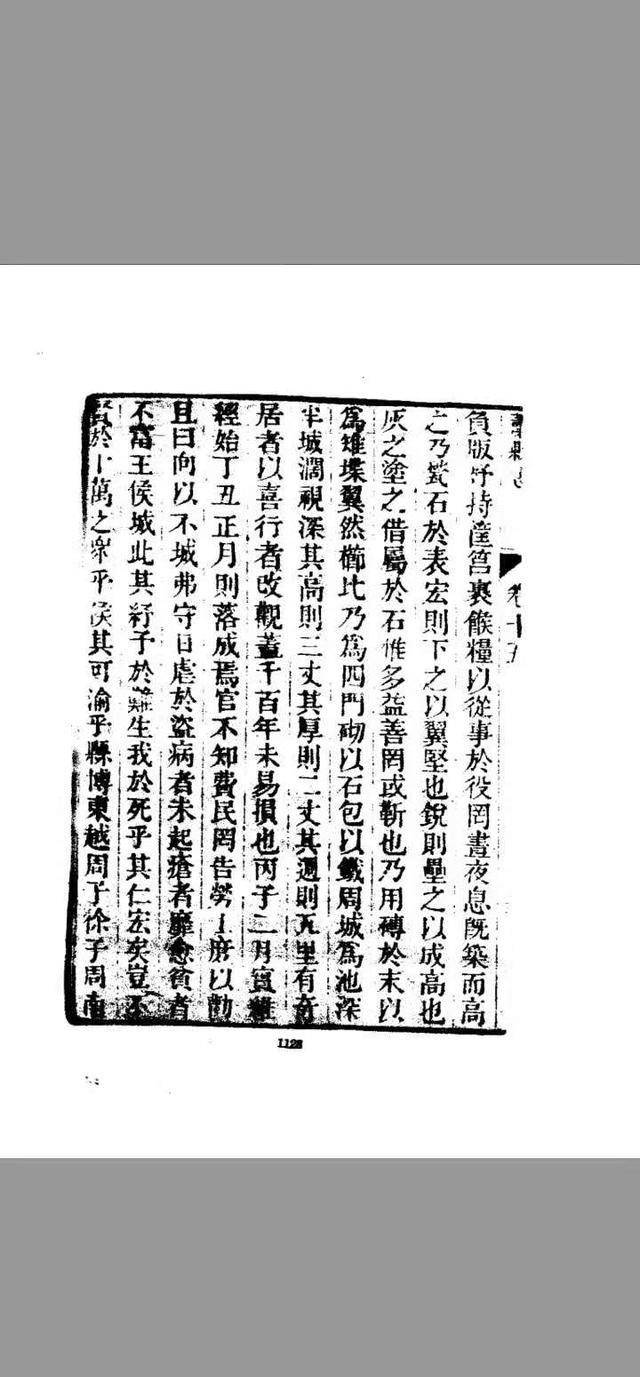 卷十五
負版杵持蓬筥裹餱糧以從事於役罔晝夜息旣築而高
之乃甃石於表宏則下之以翼堅也銳則壘之以成高也
灰之塗之借屬於石惟多益善罔或靳也乃用磚於末以
爲雉堞翼然櫛比乃爲四門砌以石包以鐵周城爲池深
半城濶視深其高則三丈其厚則二丈其週則九里有奇
居者以喜行者改觀蓋千百年未易損也丙子二月實維
經始丁丑正月則落成焉官不知費民罔告勞上麻以勤
且曰向以不城弗守日虐於盜病者未起瘡者靡愈貧者
不富王侯城此其紓予於難生我於死乎其仁宏矣豈不
賢於十萬之衆乎侯其可渝乎縣博東越周子徐子周南
1128